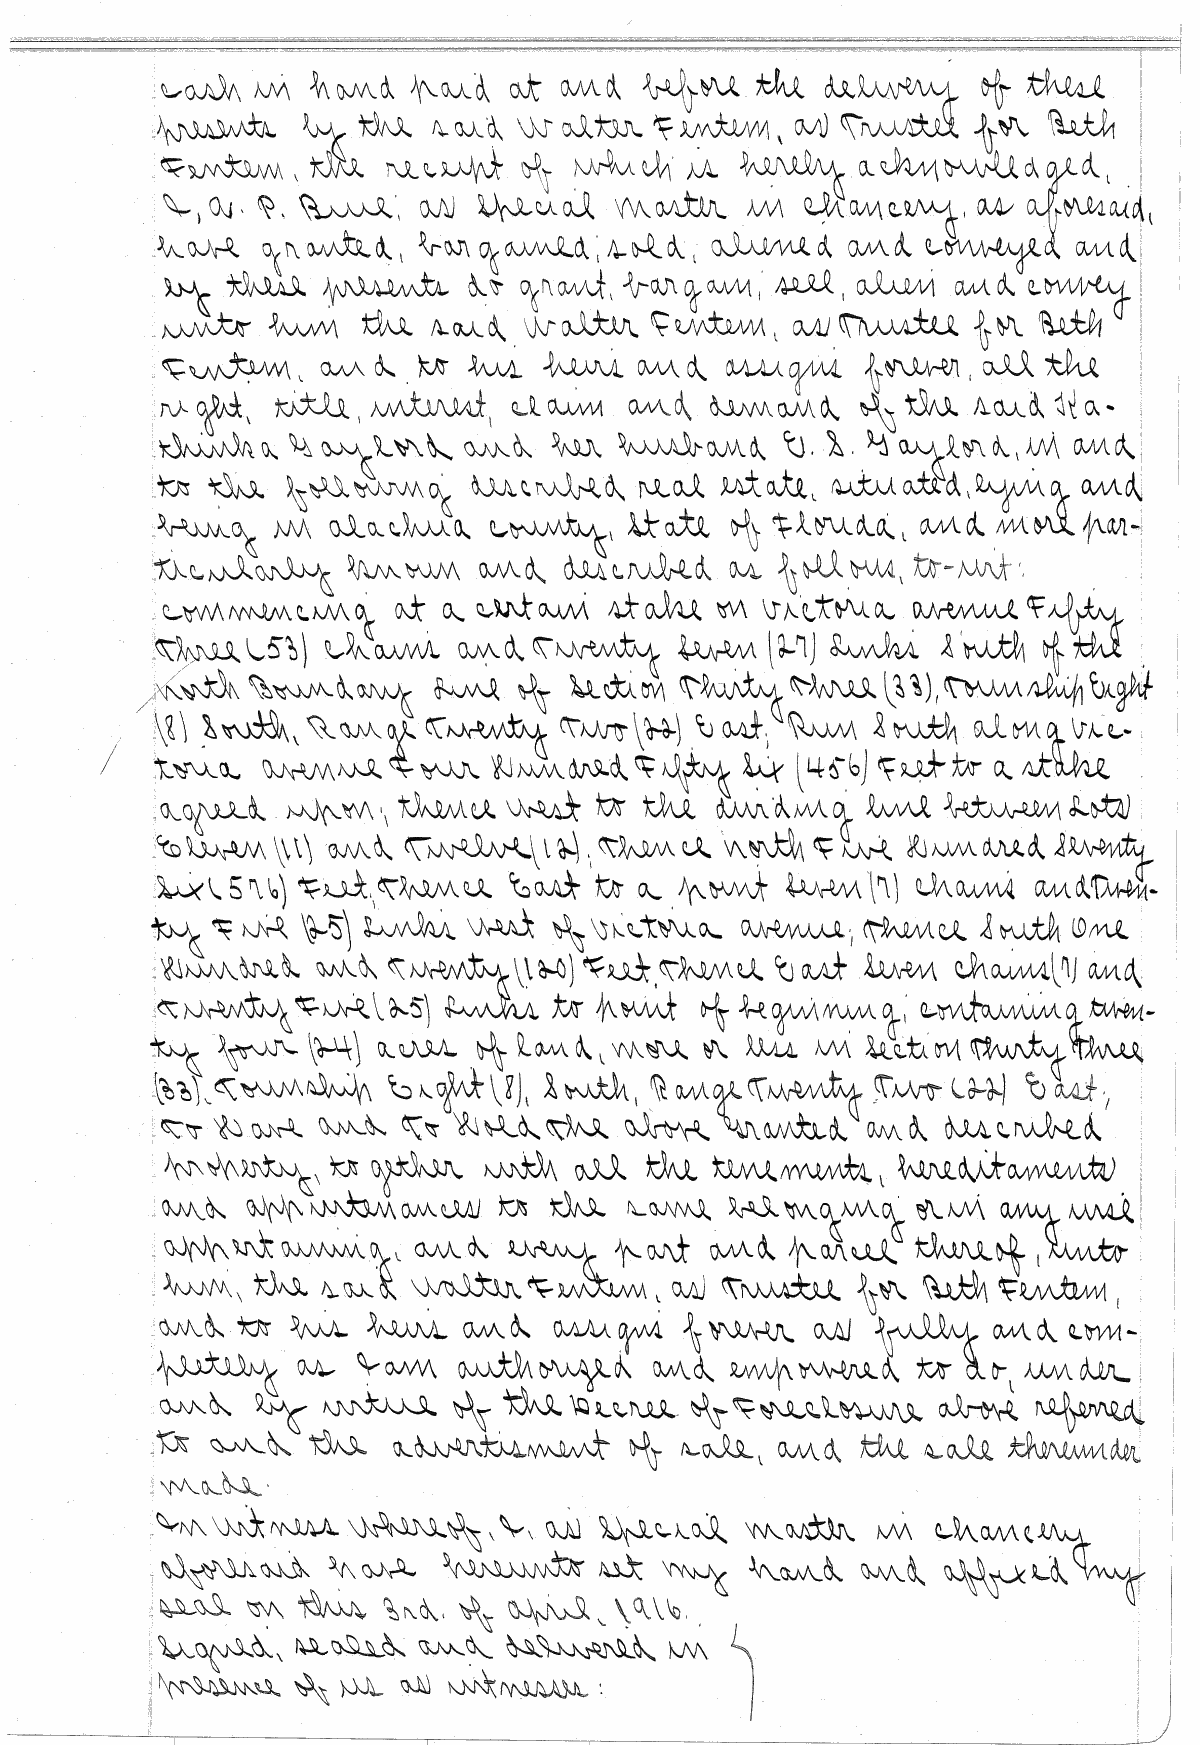 cash in hand paid at and before the delivery of these
presents by the said Walter Fentem, as Trustee for Beth
Fentem, the receipt of which is hereby acknowledged,
I, A. P. Buie, as Special Master in Chancery, as aforesaid,
have granted, bargained, sold, aliened and conveyed and
by these presents do grant, bargain, sell, alien and convey
unto him the said Walter Fentem, as Trustee for Beth
Fentem, and to his heirs and assigns forever, all the
right, title, interest, claim and demand of the said Ka-
thinka Gaylord and her husband E. S. Gaylord, in and
to the following described real estate, situated, lying and
being in Alachua County, State of Florida, and more par-
ticularly known and described as follows, to-wit:
Commencing at a certain stake on Victoria Avenue Fifty
Three (53) Chains and Twenty Seven (27) Links South of the
North Boundary Line of Section Thirty Three (33), Township Eight
(8) South, Range Twenty Two (22) East; Run South along Vic-
toria Avenue Four Hundred Fifty Six (456) Feet to a stake
agreed upon; thence West to the dividing line between Lots
Eleven (11) and Twelve (12); Thence North Five Hundred Seventy
Six (576) Feet; Thence East to a point Seven (7) Chains and Twen-
ty Five (25) Links West of Victoria Avenue; Thence South One
Hundred and Twenty (120) Feet, Thence East Seven Chains (7) and
Twenty Five (25) Links to point of beginning; containing twen-
ty four (24) acres of land, more or less in Section Thirty Three
(33), Township Eight (8), South, Range Twenty Two (22) East;
To Have and To Hold the above granted and described
property, together with all the tenements, hereditaments
and appurtenances to the same belonging or in any wise
appertaining, and every part and parcel thereof, unto
him, the said Walter Fentem, as Trustee for Beth Fentem,
and to his heirs and assigns forever as fully and com-
pletely as I am authorized and empowered to do, under
and by virtue of the Decree of Foreclosure above referred
to and the advertisment of sale, and the sale thereunder
made.
In Witness Whereof, I, as Special Master in Chancery
aforesaid have hereunto set my hand and affixed my
seal on this 3rd. of April, 1916.
Signed, sealed and delivered in
presence of us as witnesses: